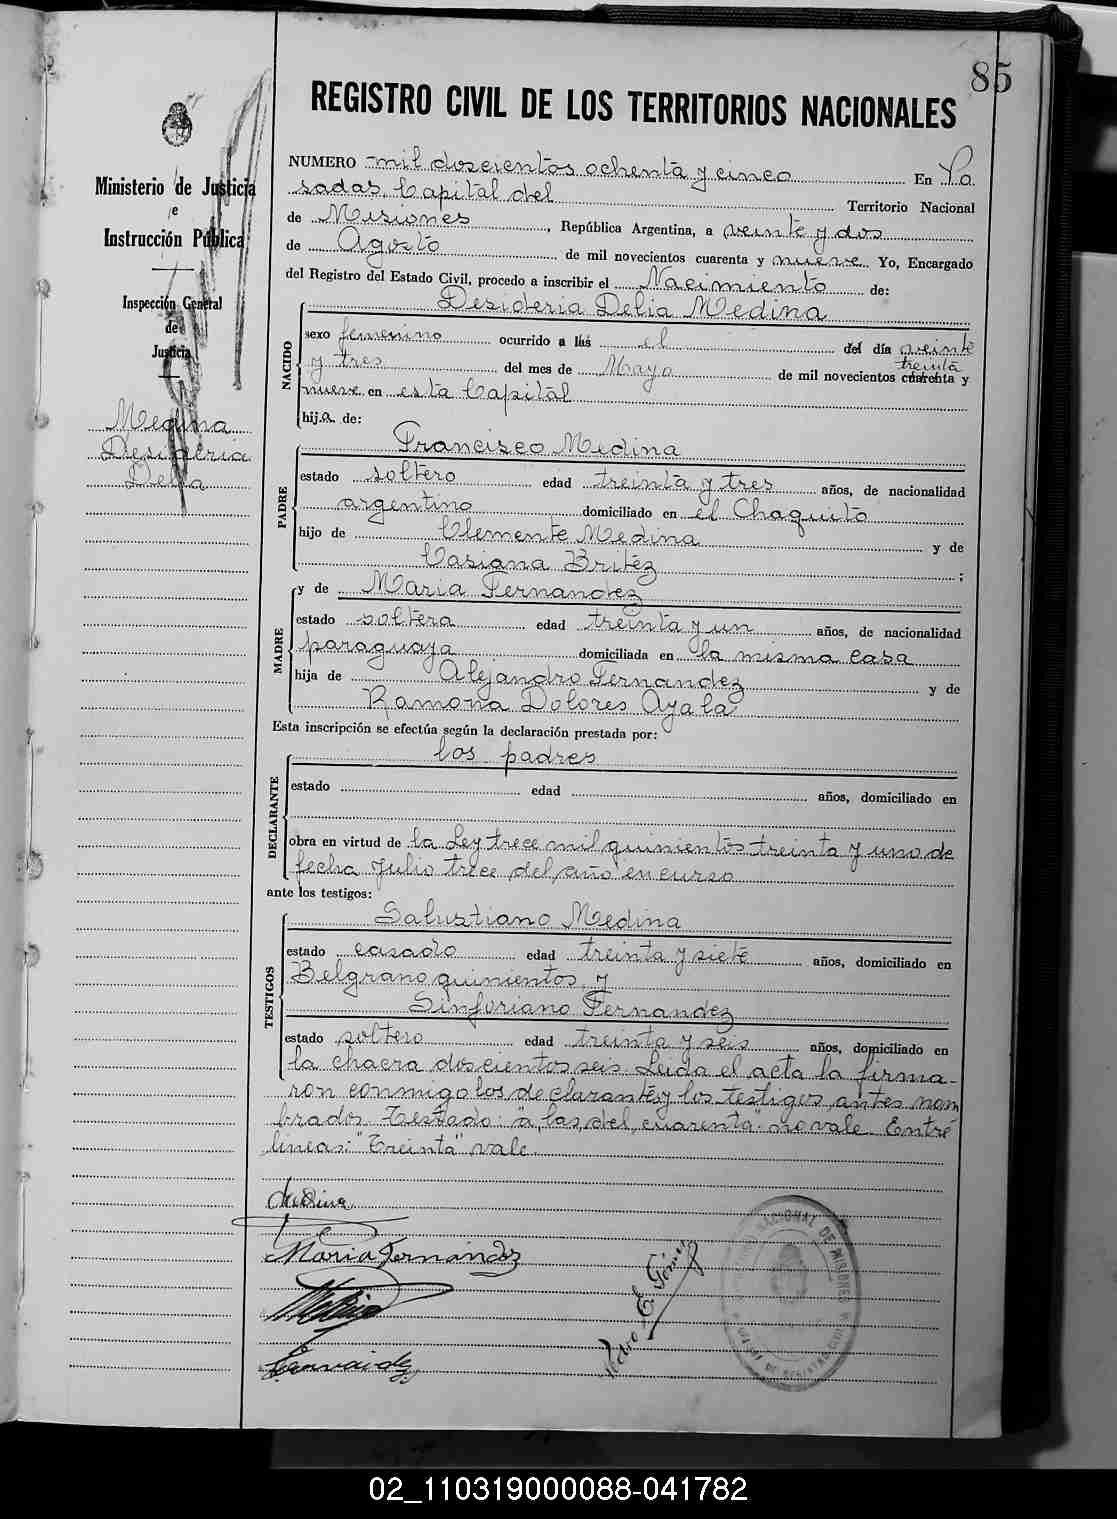 85
REGISTRO CIVIL DE LOS TERRITORIOS NACIONALES
Ministerio de Justicia
e
Instrucción Pública
Inspección General
de
Justicia
Medina
Desideria
Delia
NUMERO mil doscientos ochenta y cinco En Po
sadas, Capital del Territorio Nacional
de Misiones, República Argentina, a veinte y dos
de Agosto de mil novecientos cuarenta y nueve Yo, Encargado
del Registro del Estado Civil, procedo a inscribir el Nacimiento de:
NACIDO
Desideria Delia Medina
sexo femenino ocurrido a las el del día veinte
treinta
y tres del mes de Mayo de mil novecientos cuarenta y
nueve en esta Capital
hija de:
PADRE
Francisco Medina
estado soltero edad treinta y tres años, de nacionalidad
argentino domiciliado en el Chaquito
hijo de Clemente Medina y de
Casiana Britez ;
MADRE
y de Maria Fernandez
estado soltera edad treinta y un años, de nacionalidad
paraguaya domiciliada en la misma casa
hija de Alejandro Fernandez y de
Ramona Dolores Ayala
Esta inscripción se efectúa según la declaración prestada por:
DECLARANTE
los padres
estado edad años, domiciliado en
obra en virtud de la Ley trece mil quinientos treinta y uno de
fecha Julio trece del año en curso
ante los testigos:
TESTIGOS
Salustiano Medina
estado casado edad treinta y siete años, domiciliado en
Belgrano quinientos, y
Sinforiano Fernandez
estado soltero edad treinta y seis años, domiciliado en
la chacra doscientos seis. Leida el acta la firma-
ron conmigo los declarantes y los testigos antes nom
brados. Testado: "a, las, del, cuarenta" no vale. Entre
lineas: "Treinta" vale.
Medina
Maria Fernandez
Pedro E. Gómez
02_110319000088-041782